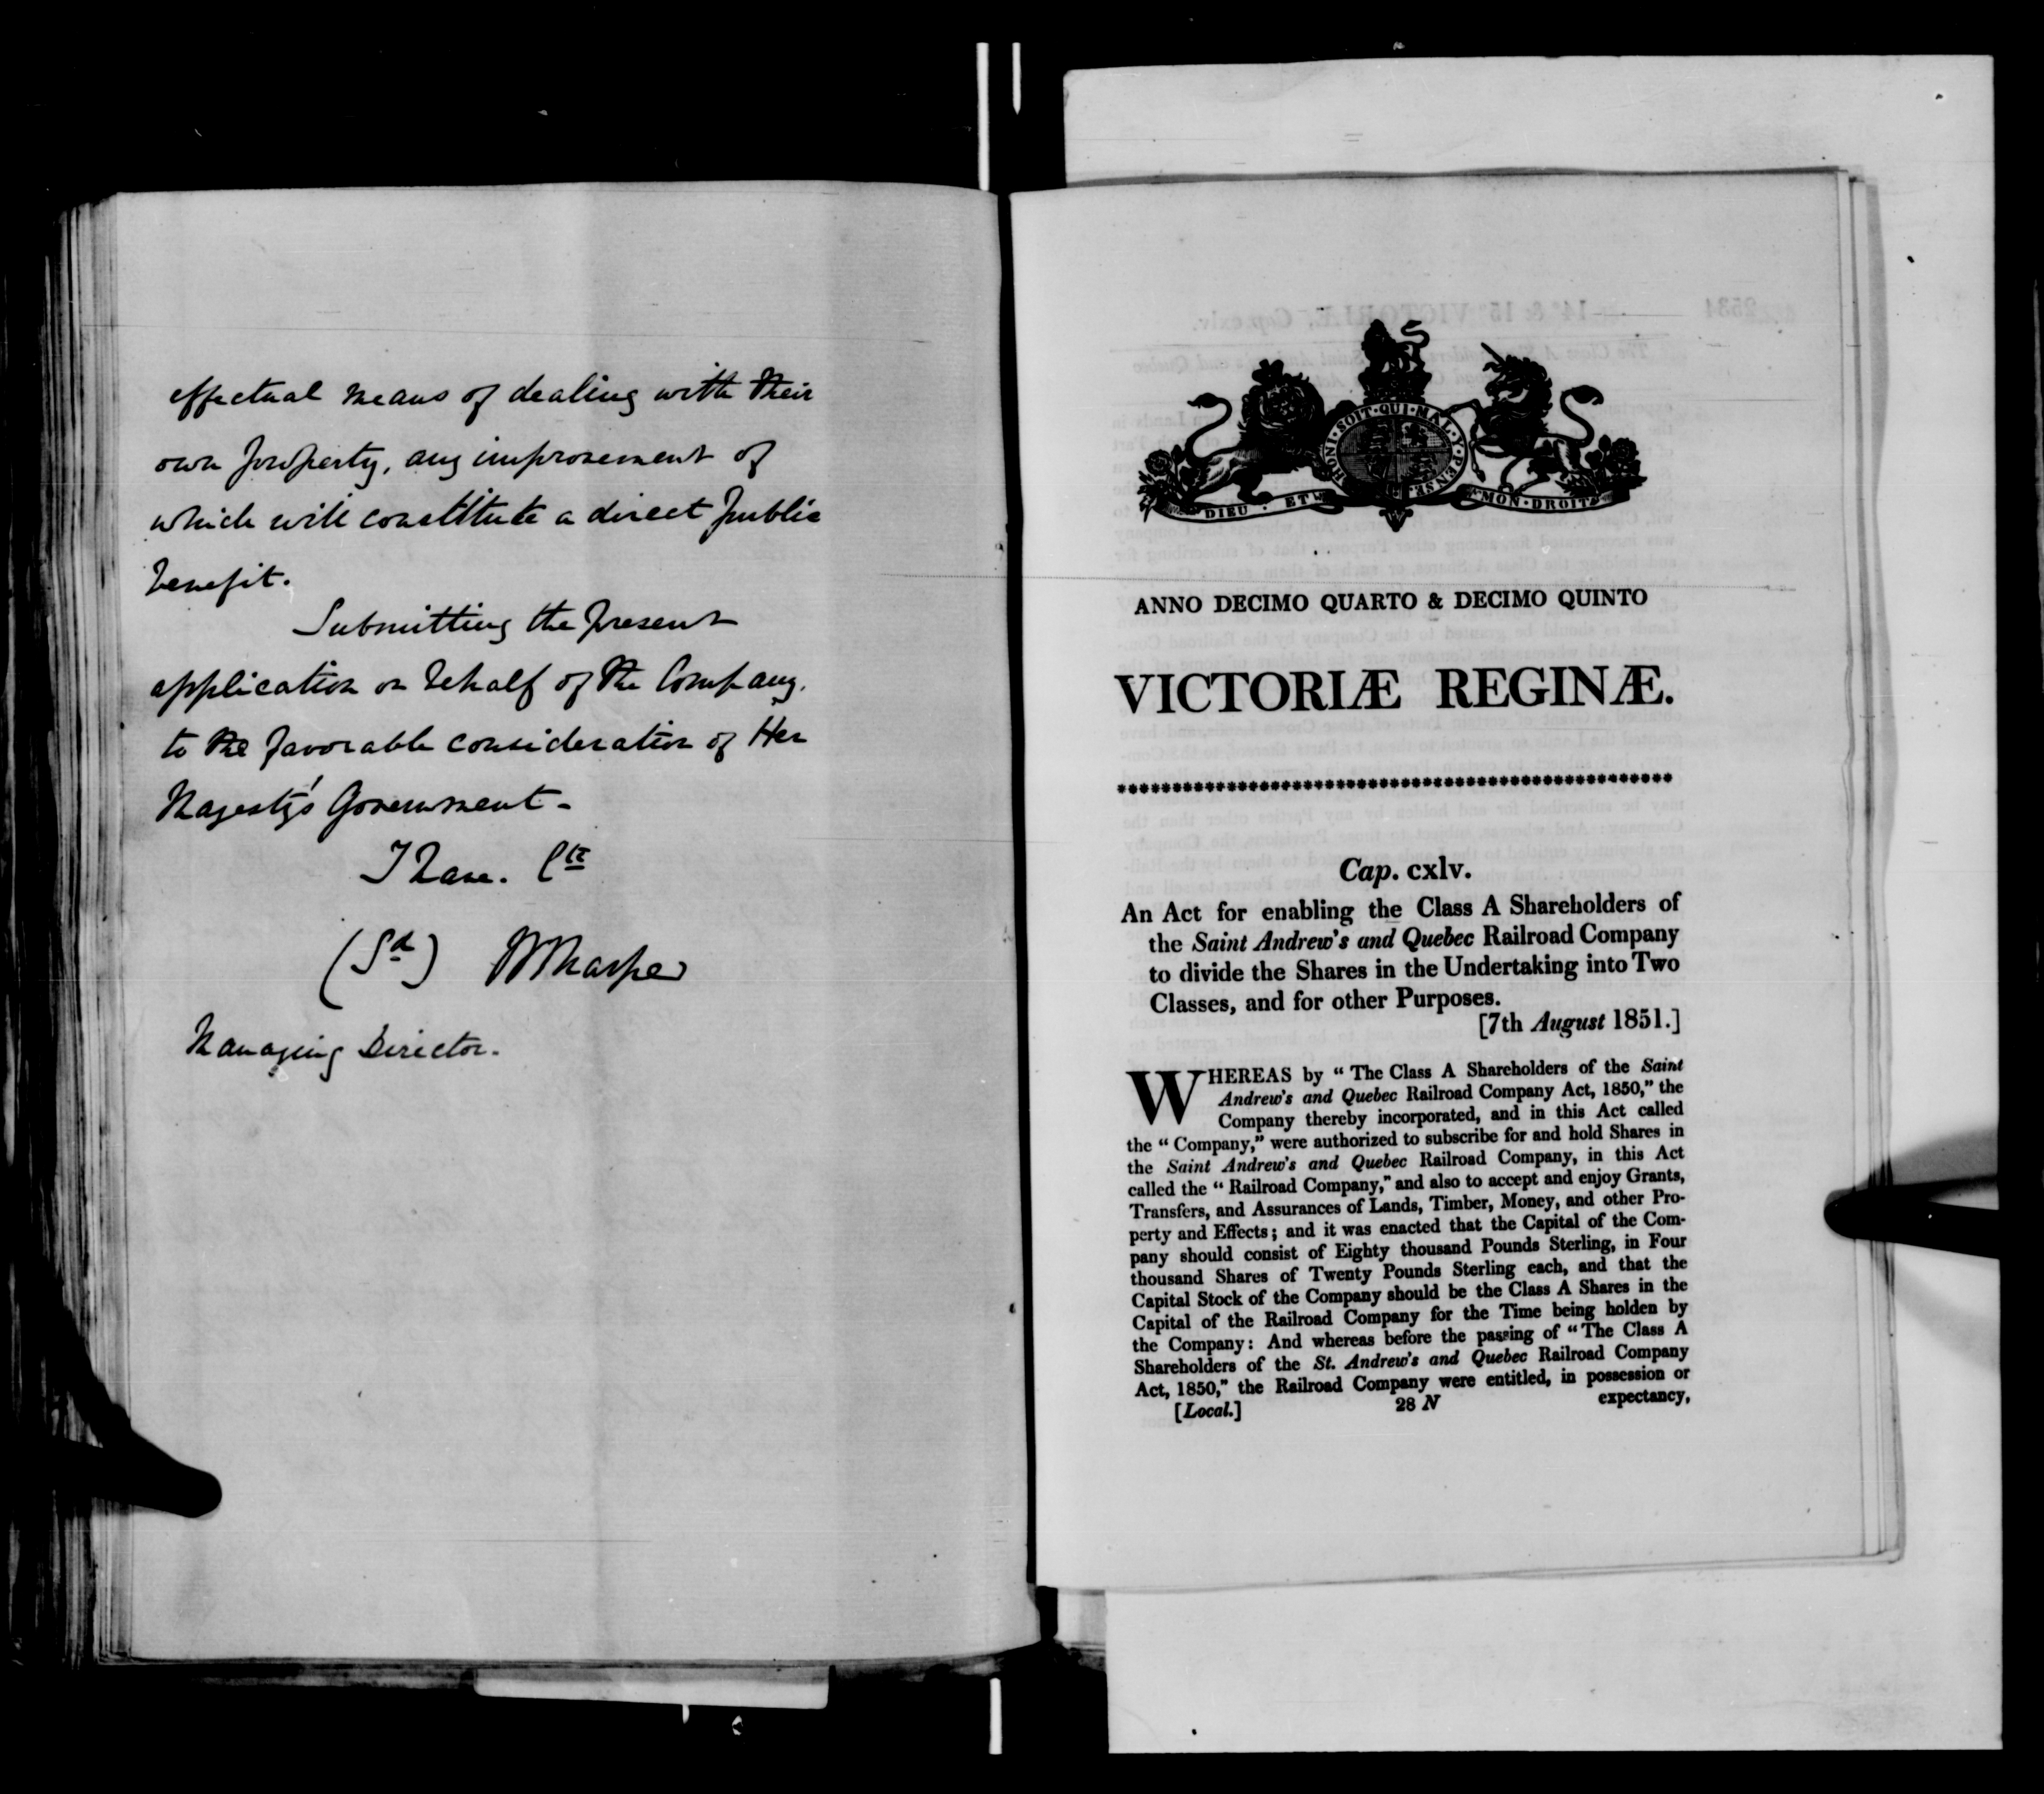 effectual means of dealing with their
own property, any improvement of
which will constitute a direct public
benefit.
Submitting the present
application on behalf of the Company,
to the favorable consideration of Her
Majesty's Government -
I have. &c
(Sd)
Managing Director.
HONI · SOIT · QUI · MAL · Y · PENSE
DIEU · ET MON · DROIT
ANNO DECIMO QUARTO & DECIMO QUINTO
VICTORIÆ REGINÆ.
Cap. cxlv.
An Act for enabling the Class A Shareholders of
the Saint Andrew's and Quebec Railroad Company
to divide the Shares in the Undertaking into Two
Classes, and for other Purposes.
[7th August 1851.]
WHEREAS by "The Class A Shareholders of the Saint
Andrew's and Quebec Railroad Company Act, 1850," the
Company thereby incorporated, and in this Act called
the "Company," were authorized to subscribe for and hold Shares in
the Saint Andrew's and Quebec Railroad Company, in this Act
called the "Railroad Company," and also to accept and enjoy Grants,
Transfers, and Assurances of Lands, Timber, Money, and other Pro-
perty and Effects; and it was enacted that the Capital of the Com-
pany should consist of Eighty thousand Pounds Sterling, in Four
thousand Shares of Twenty Pounds Sterling each, and that the
Capital Stock of the Company should be the Class A Shares in the
Capital of the Railroad Company for the Time being holden by
the Company: And whereas before the passing of "The Class A
Shareholders of the St. Andrew's and Quebec Railroad Company
Act, 1850," the Railroad Company were entitled, in possession or
[Local.] 28 N expectancy,